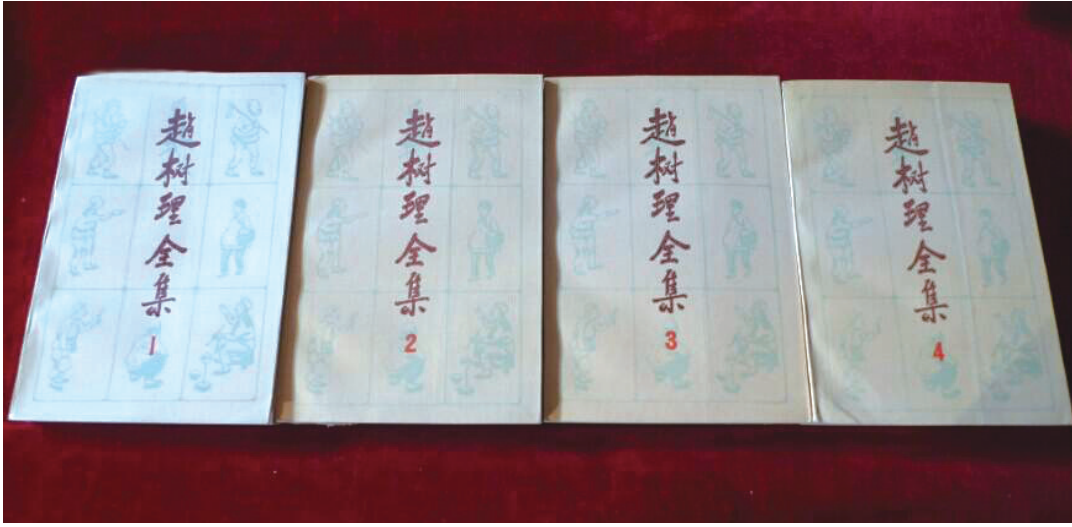 趙树理全集
1
趙树理全集
2
趙树理全集
3
趙树理全集
4